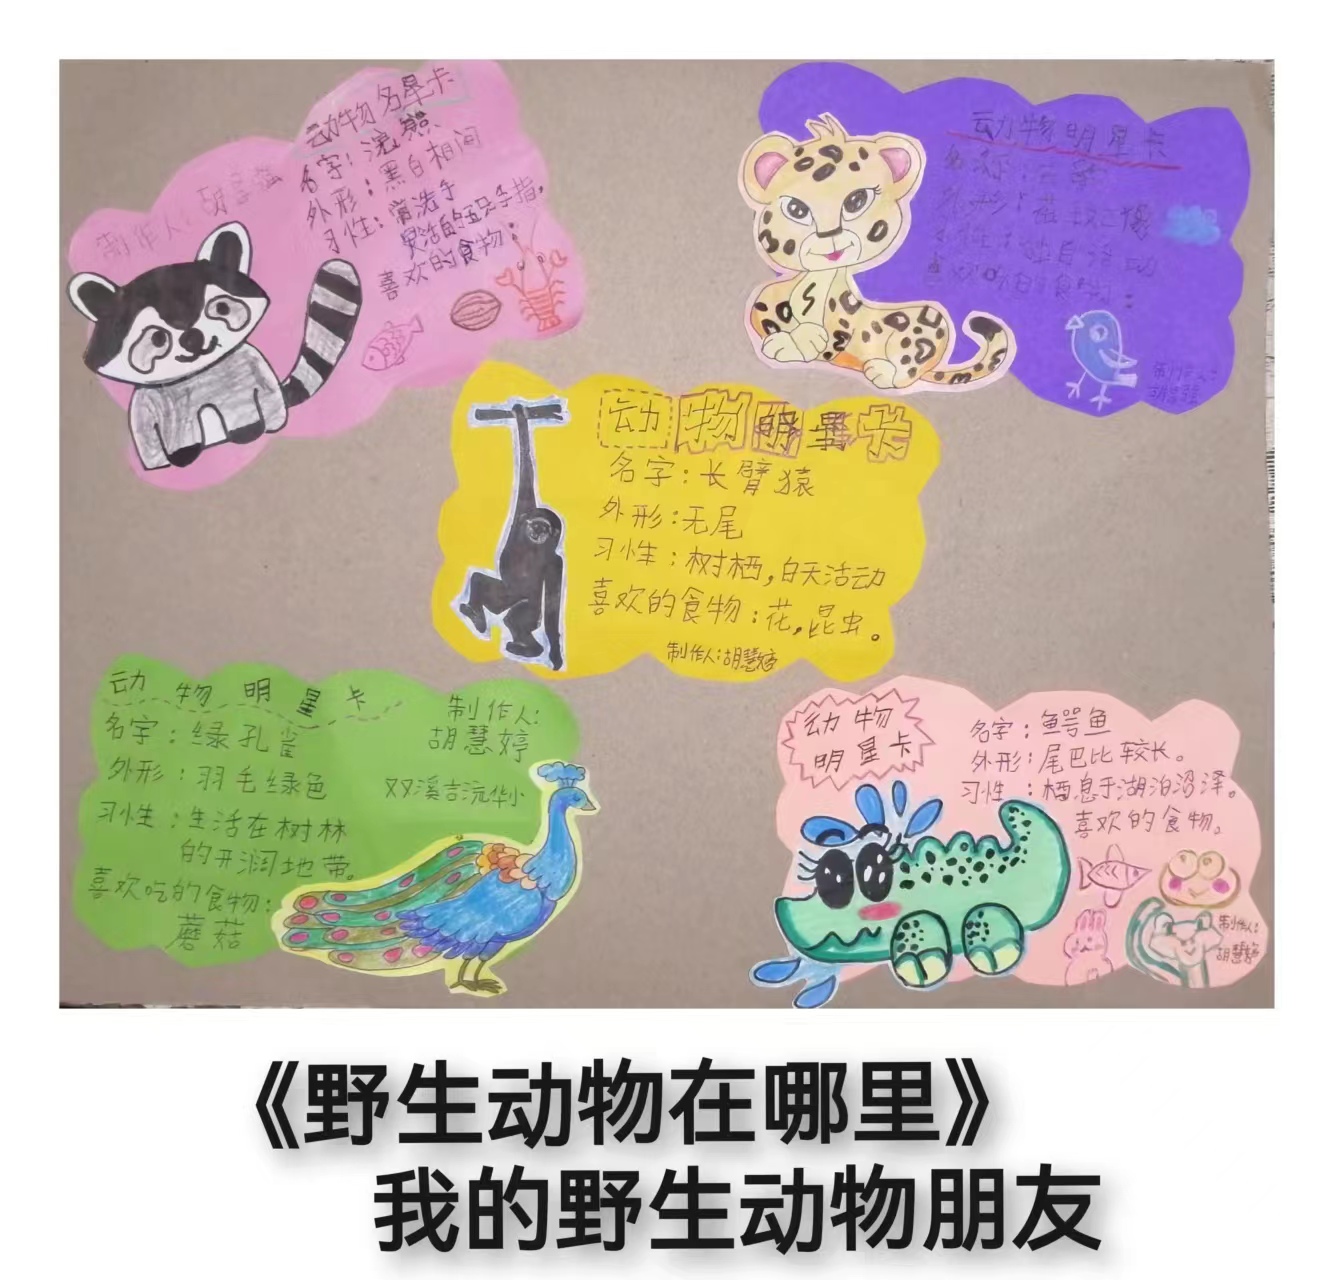 动物名星卡
名字：浣熊
外形：黑白相间
习性：常洗手
灵活的五只手指。
喜欢的食物：
制作人：胡慧婷
动物明星卡
独自活动
制作人：
动物明星卡
名字：长臂猿
外形：无尾
习性：树栖，白天活动
喜欢的食物：花，昆虫。
制作人：胡慧婷
动物明星卡
名字：绿孔雀
外形：羽毛绿色
习性：生活在树林
的开阔地带。
喜欢吃的食物：
蘑菇
制作人：
胡慧婷
双溪吉沅华小
动物
明星卡
名字：鳄鱼
外形：尾巴比较长。
习性：栖息于湖泊沼泽。
喜欢的食物。
制作人：
胡慧婷
《野生动物在哪里》
我的野生动物朋友